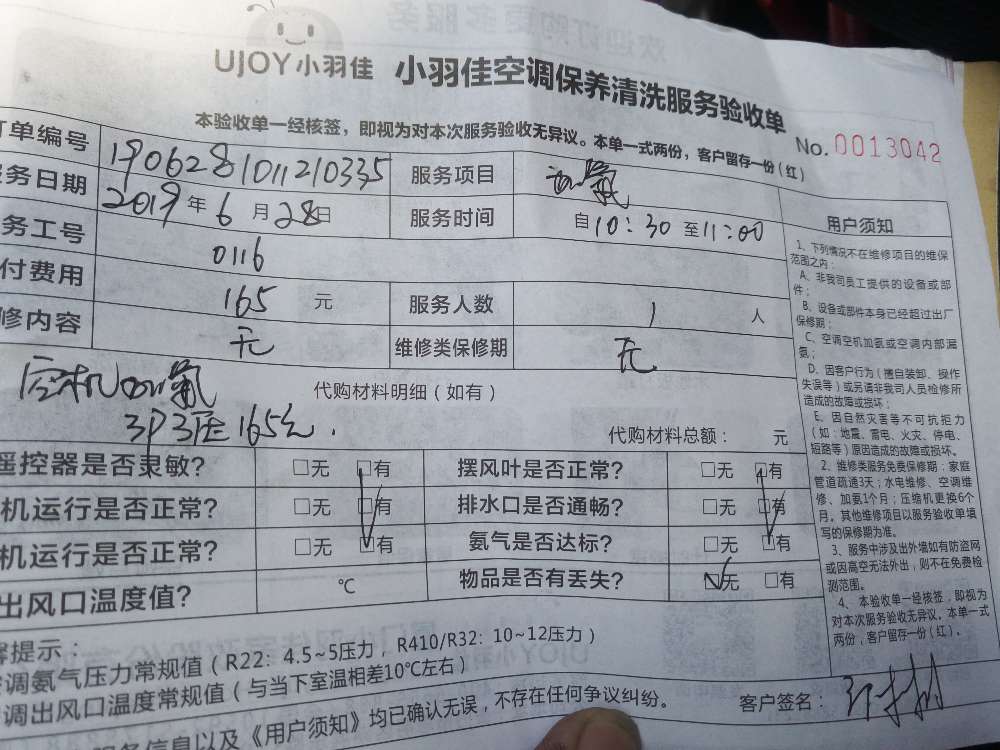 UJOY小羽佳 小羽佳空调保养清洗服务验收单
本验收单一经核签，即视为对本次服务验收无异议。本单一式两份，客户留存一份（红）
No. 0013042
订单编号 1906281011210335 服务项目
服务日期 2019年6月28日 服务时间 自10:30至11:00
务工号 0116
付费用 165 元 服务人数 1 人
修内容 无 维修类保修期 无
空机加氨 代购材料明细（如有）
3P 3压 165元.
代购材料总额： 元
遥控器是否灵敏? □无 □有 摆风叶是否正常? □无 □有
机运行是否正常? □无 □有 排水口是否通畅? □无 □有
机运行是否正常? □无 □有 氨气是否达标? □无 □有
出风口温度值? ℃ 物品是否有丢失? □无 □有
用户须知
1、下列情况不在维修项目的维保
范围之内：
A、非我司员工提供的设备或部
件；
B、设备或部件本身已经超过出厂
保修期；
C、空调空机加氨或空调内部漏
氨；
D、因客户行为（擅自装卸、操作
失误等）或另请非我司人员检修所
造成的故障或损坏；
E、因自然灾害等不可抗拒力
（如：地震、雷电、火灾、停电、
短路等）原因造成的故障或损坏。
2、维修类服务免费保修期：家庭
管道疏通3天；水电维修、空调维
修、加氨1个月；压缩机更换6个
月。其他维修项目以服务验收单填
写的保修期为准。
3、服务中涉及出外墙如有防盗网
或因高空无法外出，则不在免费检
测范围。
4、本验收单一经核签，即视为
对本次服务验收无异议。本单一式
两份，客户留存一份（红）。
提示：
调氨气压力常规值（R22：4.5~5压力，R410/R32：10~12压力）
调出风口温度常规值（与当下室温相差10℃左右）
服务信息以及《用户须知》均已确认无误，不存在任何争议纠纷。
客户签名：